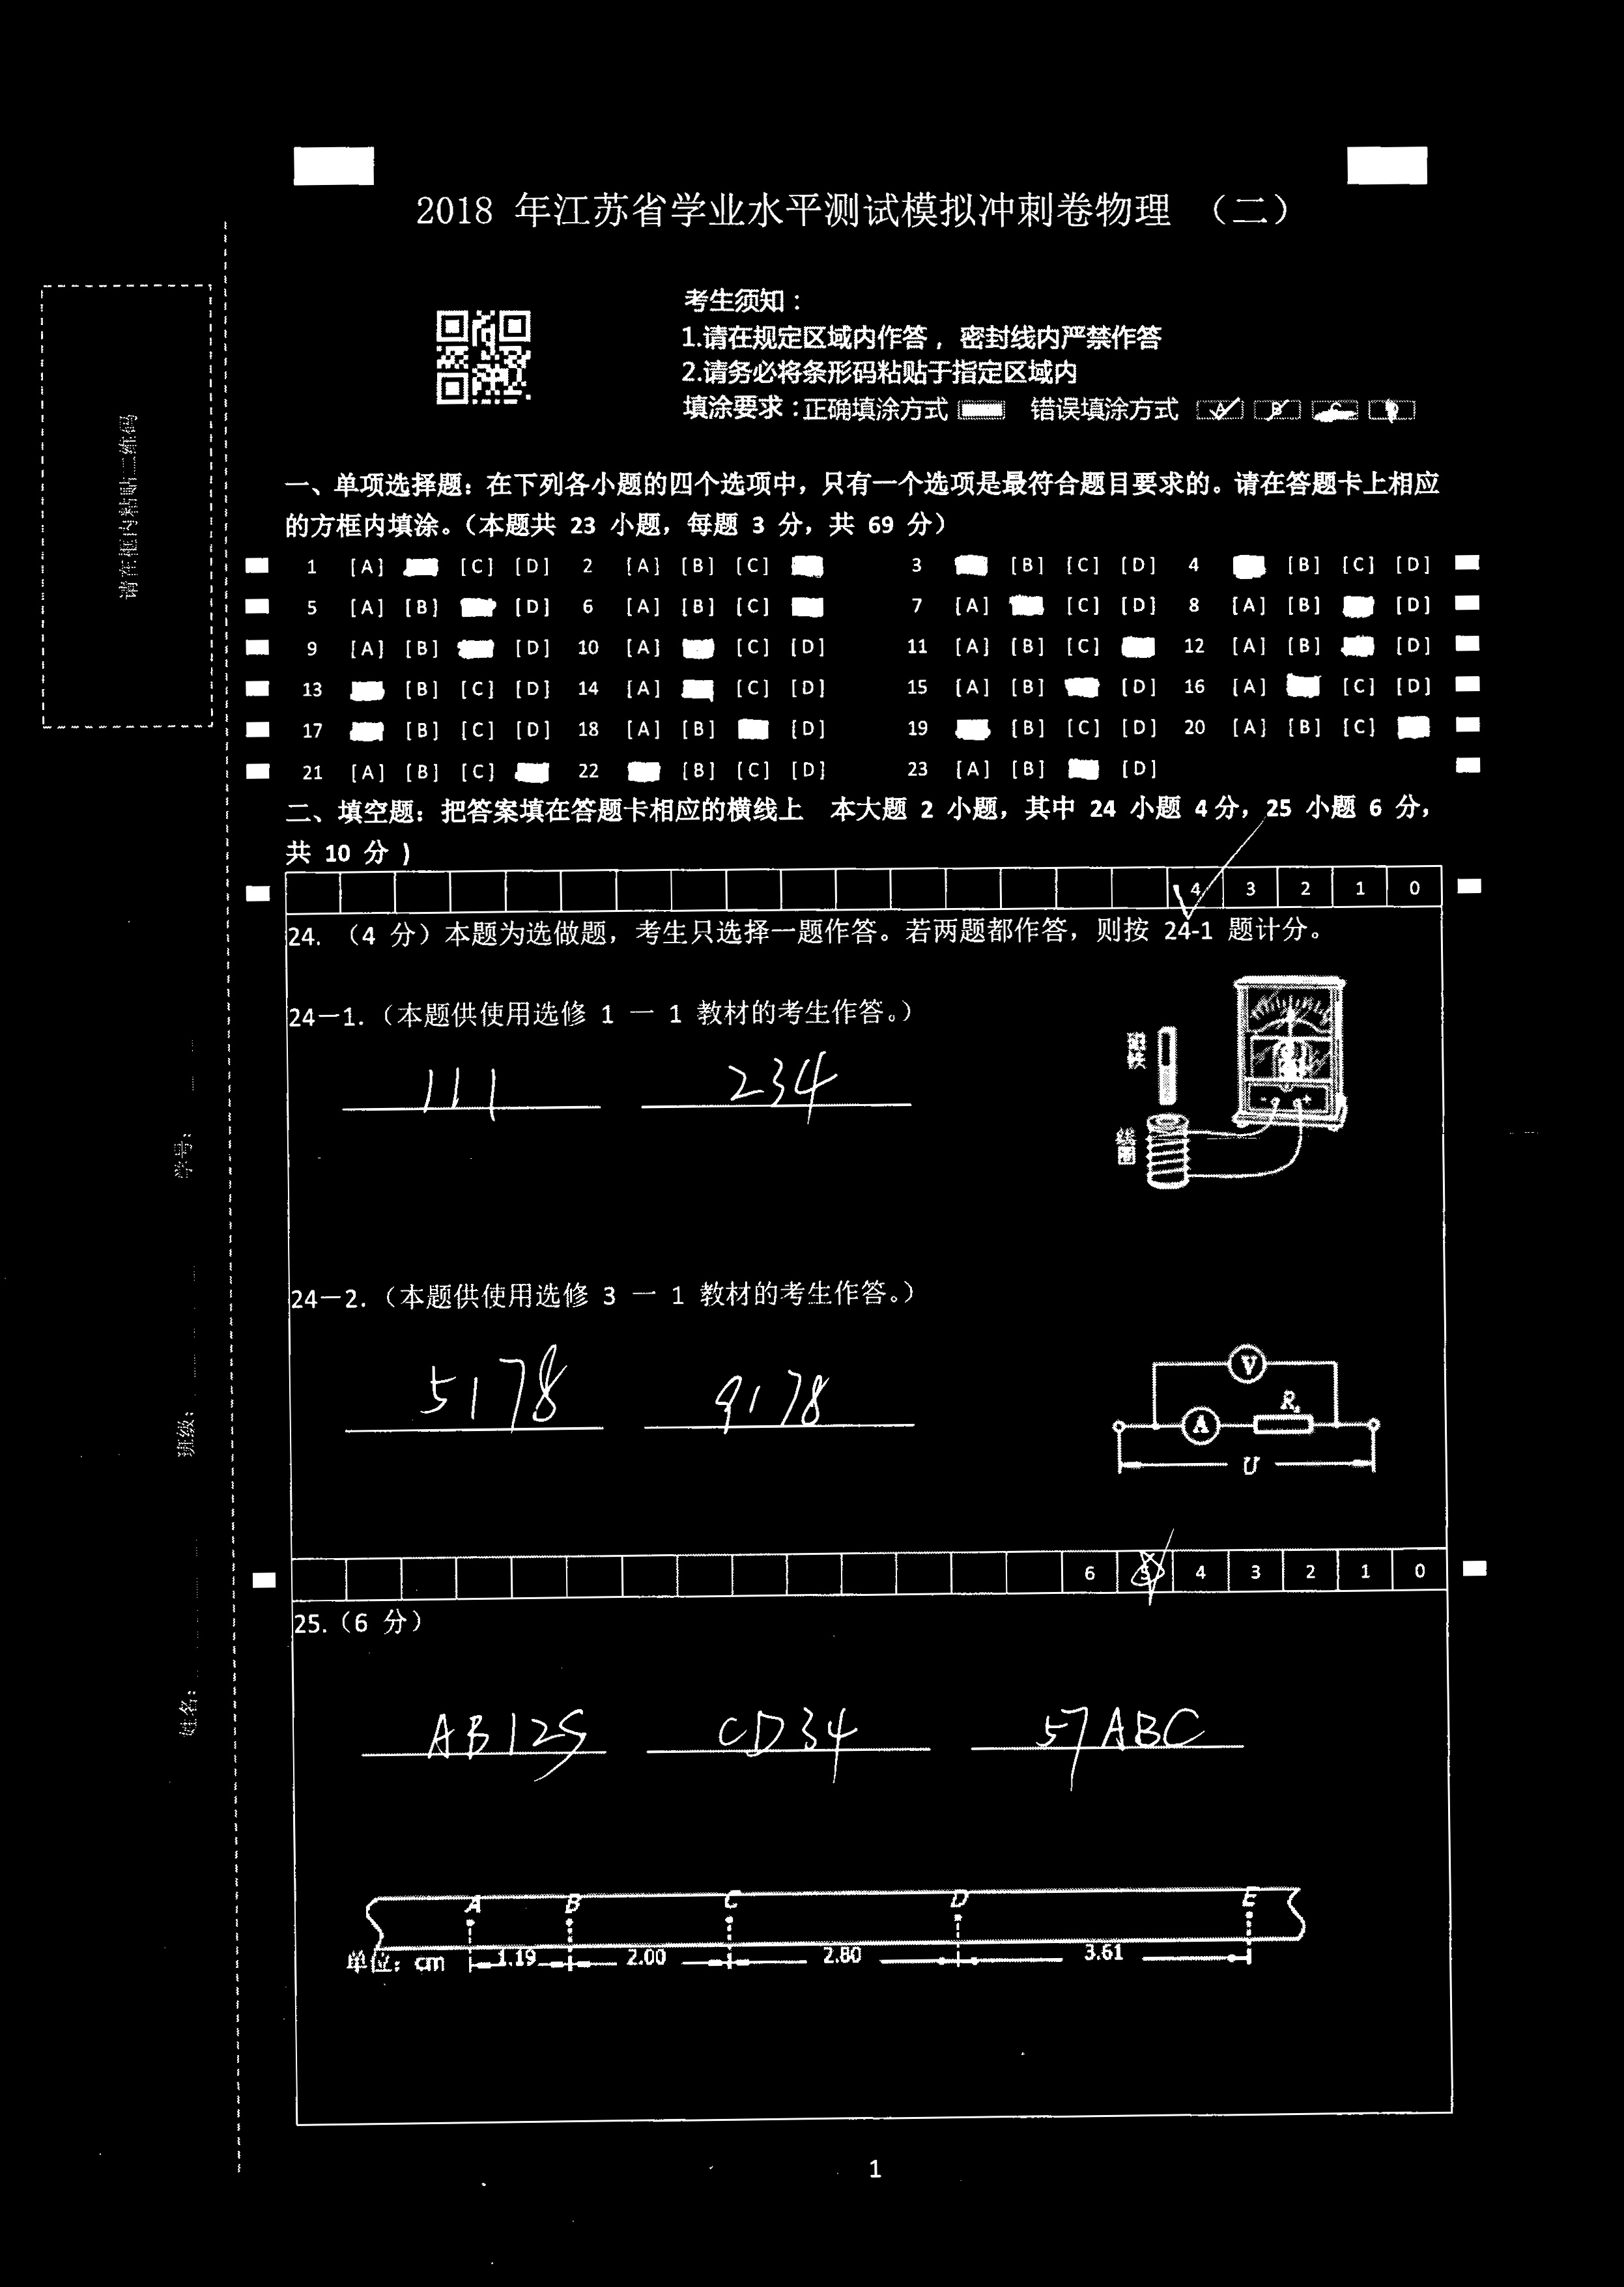 2018 年江苏省学业水平测试模拟冲刺卷物理 （二）
请在框内粘贴二维码
考生须知：
1.请在规定区域内作答，密封线内严禁作答
2.请务必将条形码粘贴于指定区域内
填涂要求：正确填涂方式 错误填涂方式 A B C D
一、单项选择题：在下列各小题的四个选项中，只有一个选项是最符合题目要求的。请在答题卡上相应
的方框内填涂。（本题共 23 小题，每题 3 分，共 69 分）
1 [A] [C] [D] 2 [A] [B] [C] 3 [B] [C] [D] 4 [B] [C] [D]
5 [A] [B] [D] 6 [A] [B] [C] 7 [A] [C] [D] 8 [A] [B] [D]
9 [A] [B] [D] 10 [A] [C] [D] 11 [A] [B] [C] 12 [A] [B] [D]
13 [B] [C] [D] 14 [A] [C] [D] 15 [A] [B] [D] 16 [A] [C] [D]
17 [B] [C] [D] 18 [A] [B] [D] 19 [B] [C] [D] 20 [A] [B] [C]
21 [A] [B] [C] 22 [B] [C] [D] 23 [A] [B] [D]
二、填空题：把答案填在答题卡相应的横线上 本大题 2 小题，其中 24 小题 4分，25 小题 6 分，
共 10 分 )
4 3 2 1 0
24. （4 分）本题为选做题，考生只选择一题作答。若两题都作答，则按 24-1 题计分。
24－1.（本题供使用选修 1 一 1 教材的考生作答。）
111 234
磁铁
线圈
- +
学号：
24－2.（本题供使用选修 3 一 1 教材的考生作答。）
5178 9178
V
A Rx
U
班级：
6 5 4 3 2 1 0
25.（6 分）
姓名：
AB125 CD34 57ABC
A B C D E
单位：cm 1.19 2.00 2.80 3.61
1